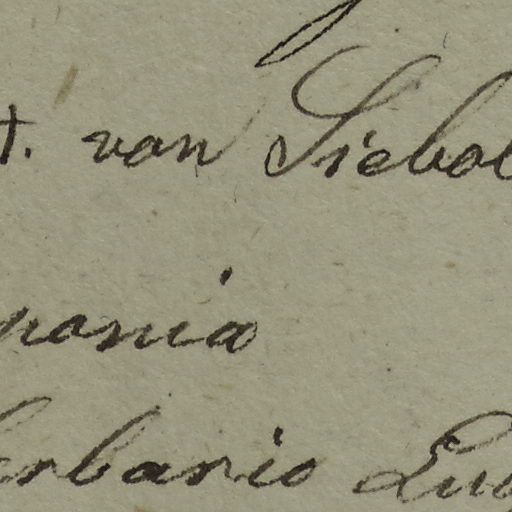 t. van Siebol
ponia
erbario Lug